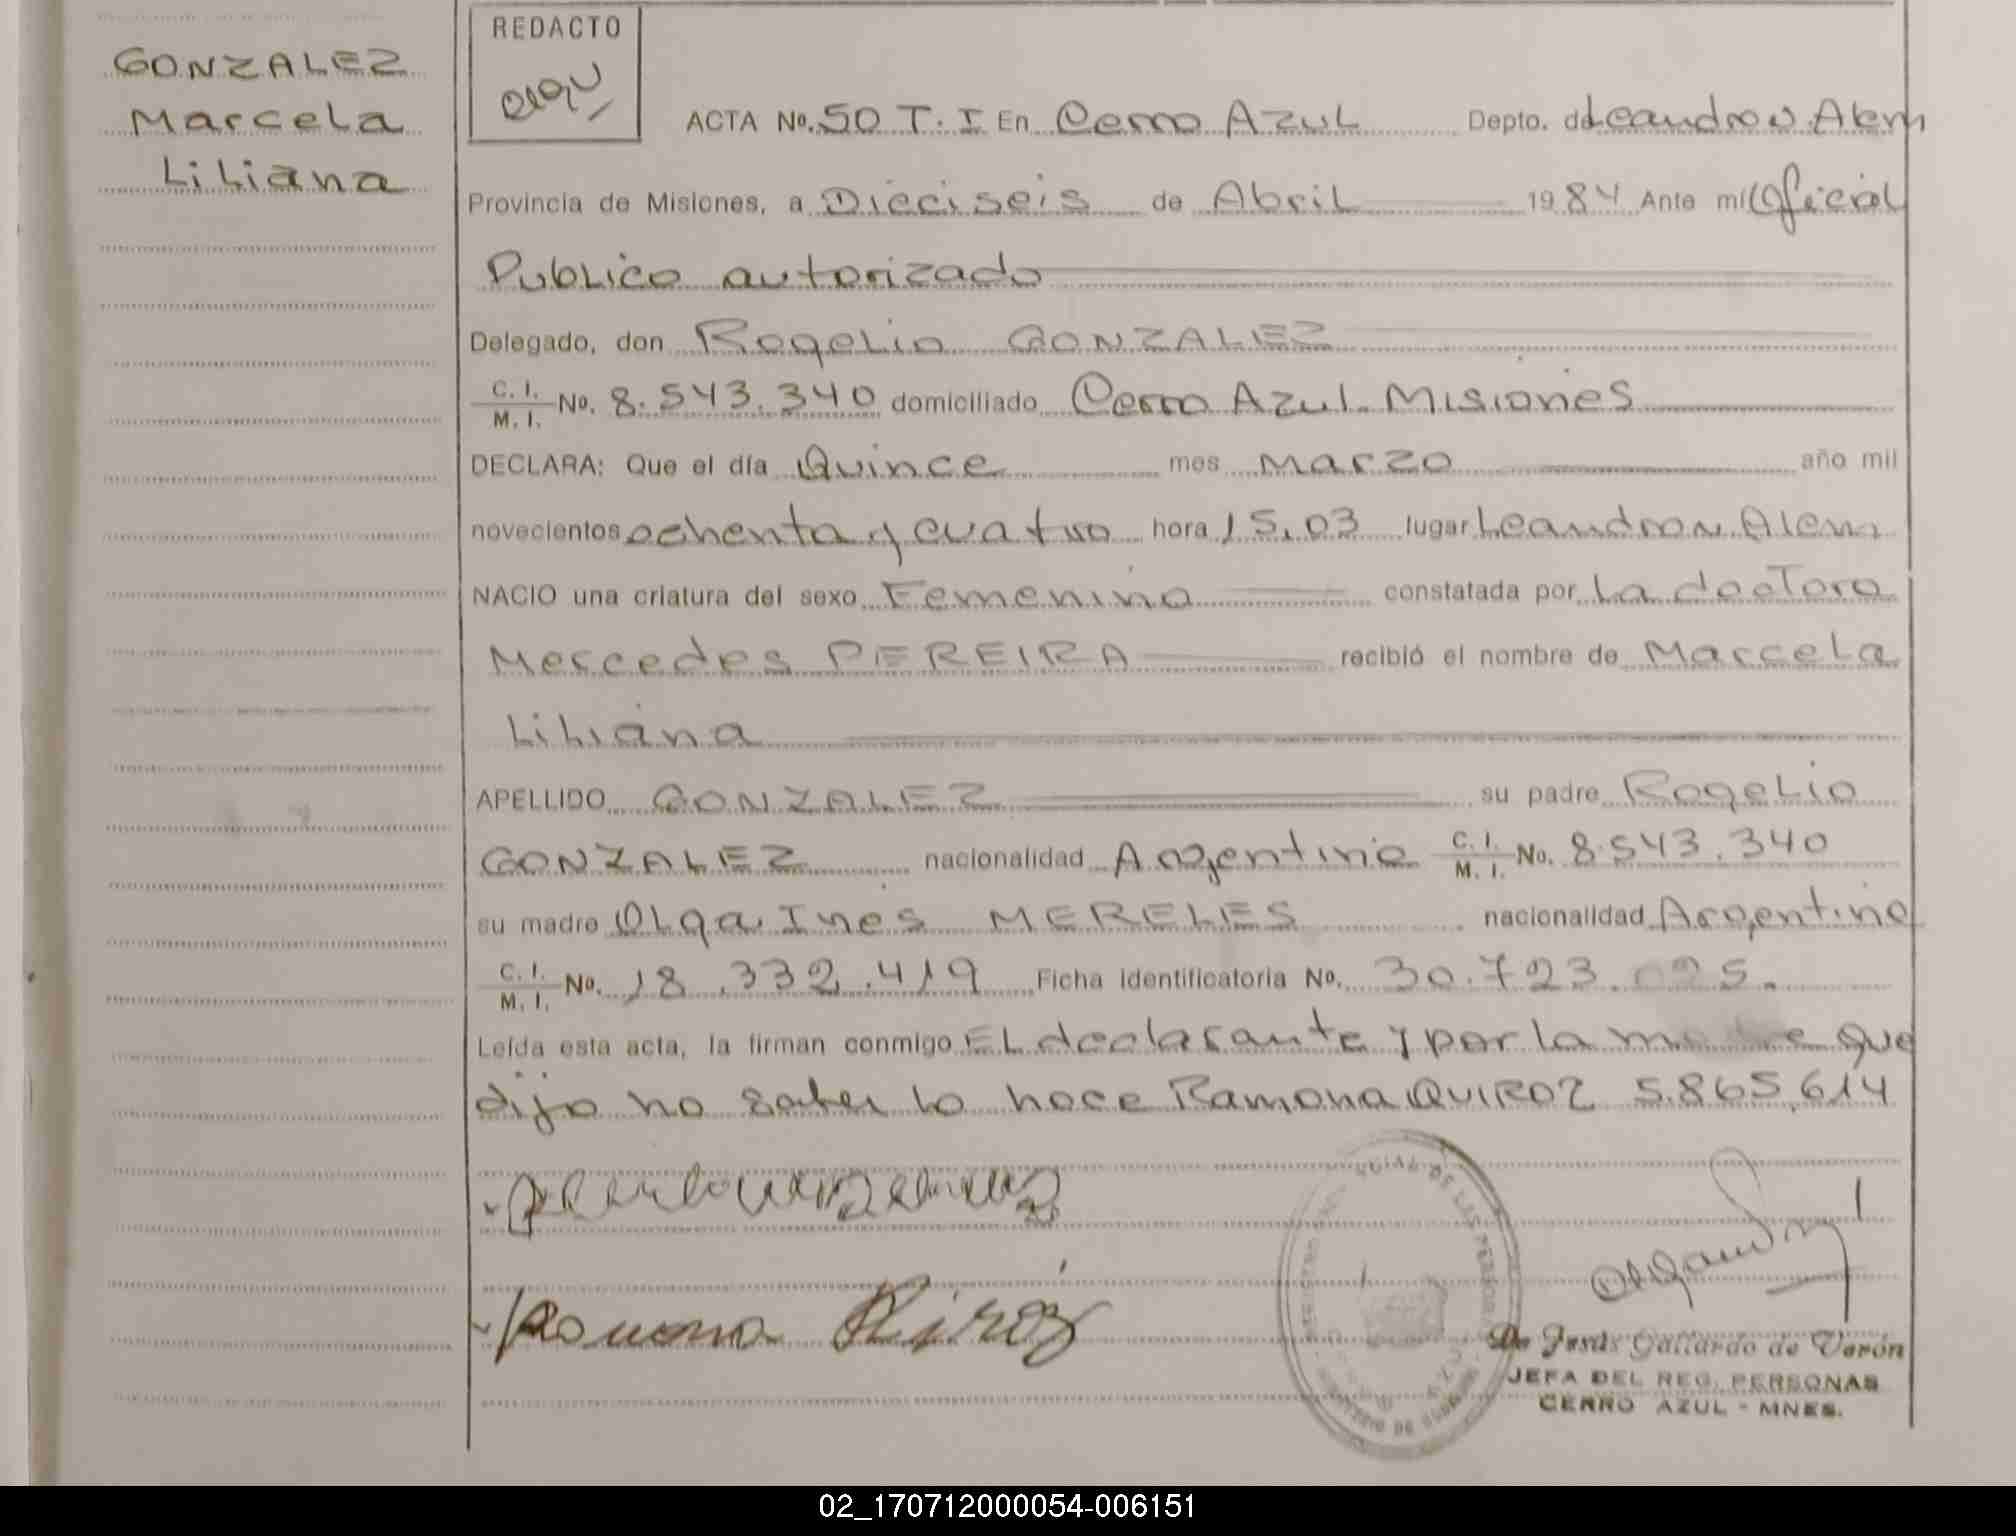 GONZALEZ
Marcela
Liliana
REDACTO
ACTA No. 50 T. I En Cerro Azul Depto. de Leandro N Alem
Provincia de Misiones, a Dieciseis de Abril 1984 Ante mi Oficial
Publico autorizado
Delegado, don Rogelio GONZALEZ
C. I. / M. I. No. 8.543.340 domiciliado Cerro Azul. Misiones
DECLARA: Que el día Quince mes Marzo año mil
novecientos ochenta y cuatro hora 15,03 lugar Leandro N. Alem
NACIO una criatura del sexo Femenino constatada por La doctora
Mercedes PEREIRA recibió el nombre de Marcela
Liliana
APELLIDO GONZALEZ su padre Rogelio
GONZALEZ nacionalidad Argentino C. I. / M. I. No. 8.543.340
su madre Olga Ines MERELES nacionalidad Argentina
C. I. / M. I. No. 18.332.419 Ficha Identificatoria No. 30.723.025.
Leída esta acta, la firman conmigo EL declarante y por la madre que
dijo no saber lo hace Ramona QUIROZ 5.865.614
Ramona Quiroz
De Jesús Gallardo de Verón
JEFA DEL REG. PERSONAS
CERRO AZUL - MNES.
02_170712000054-006151